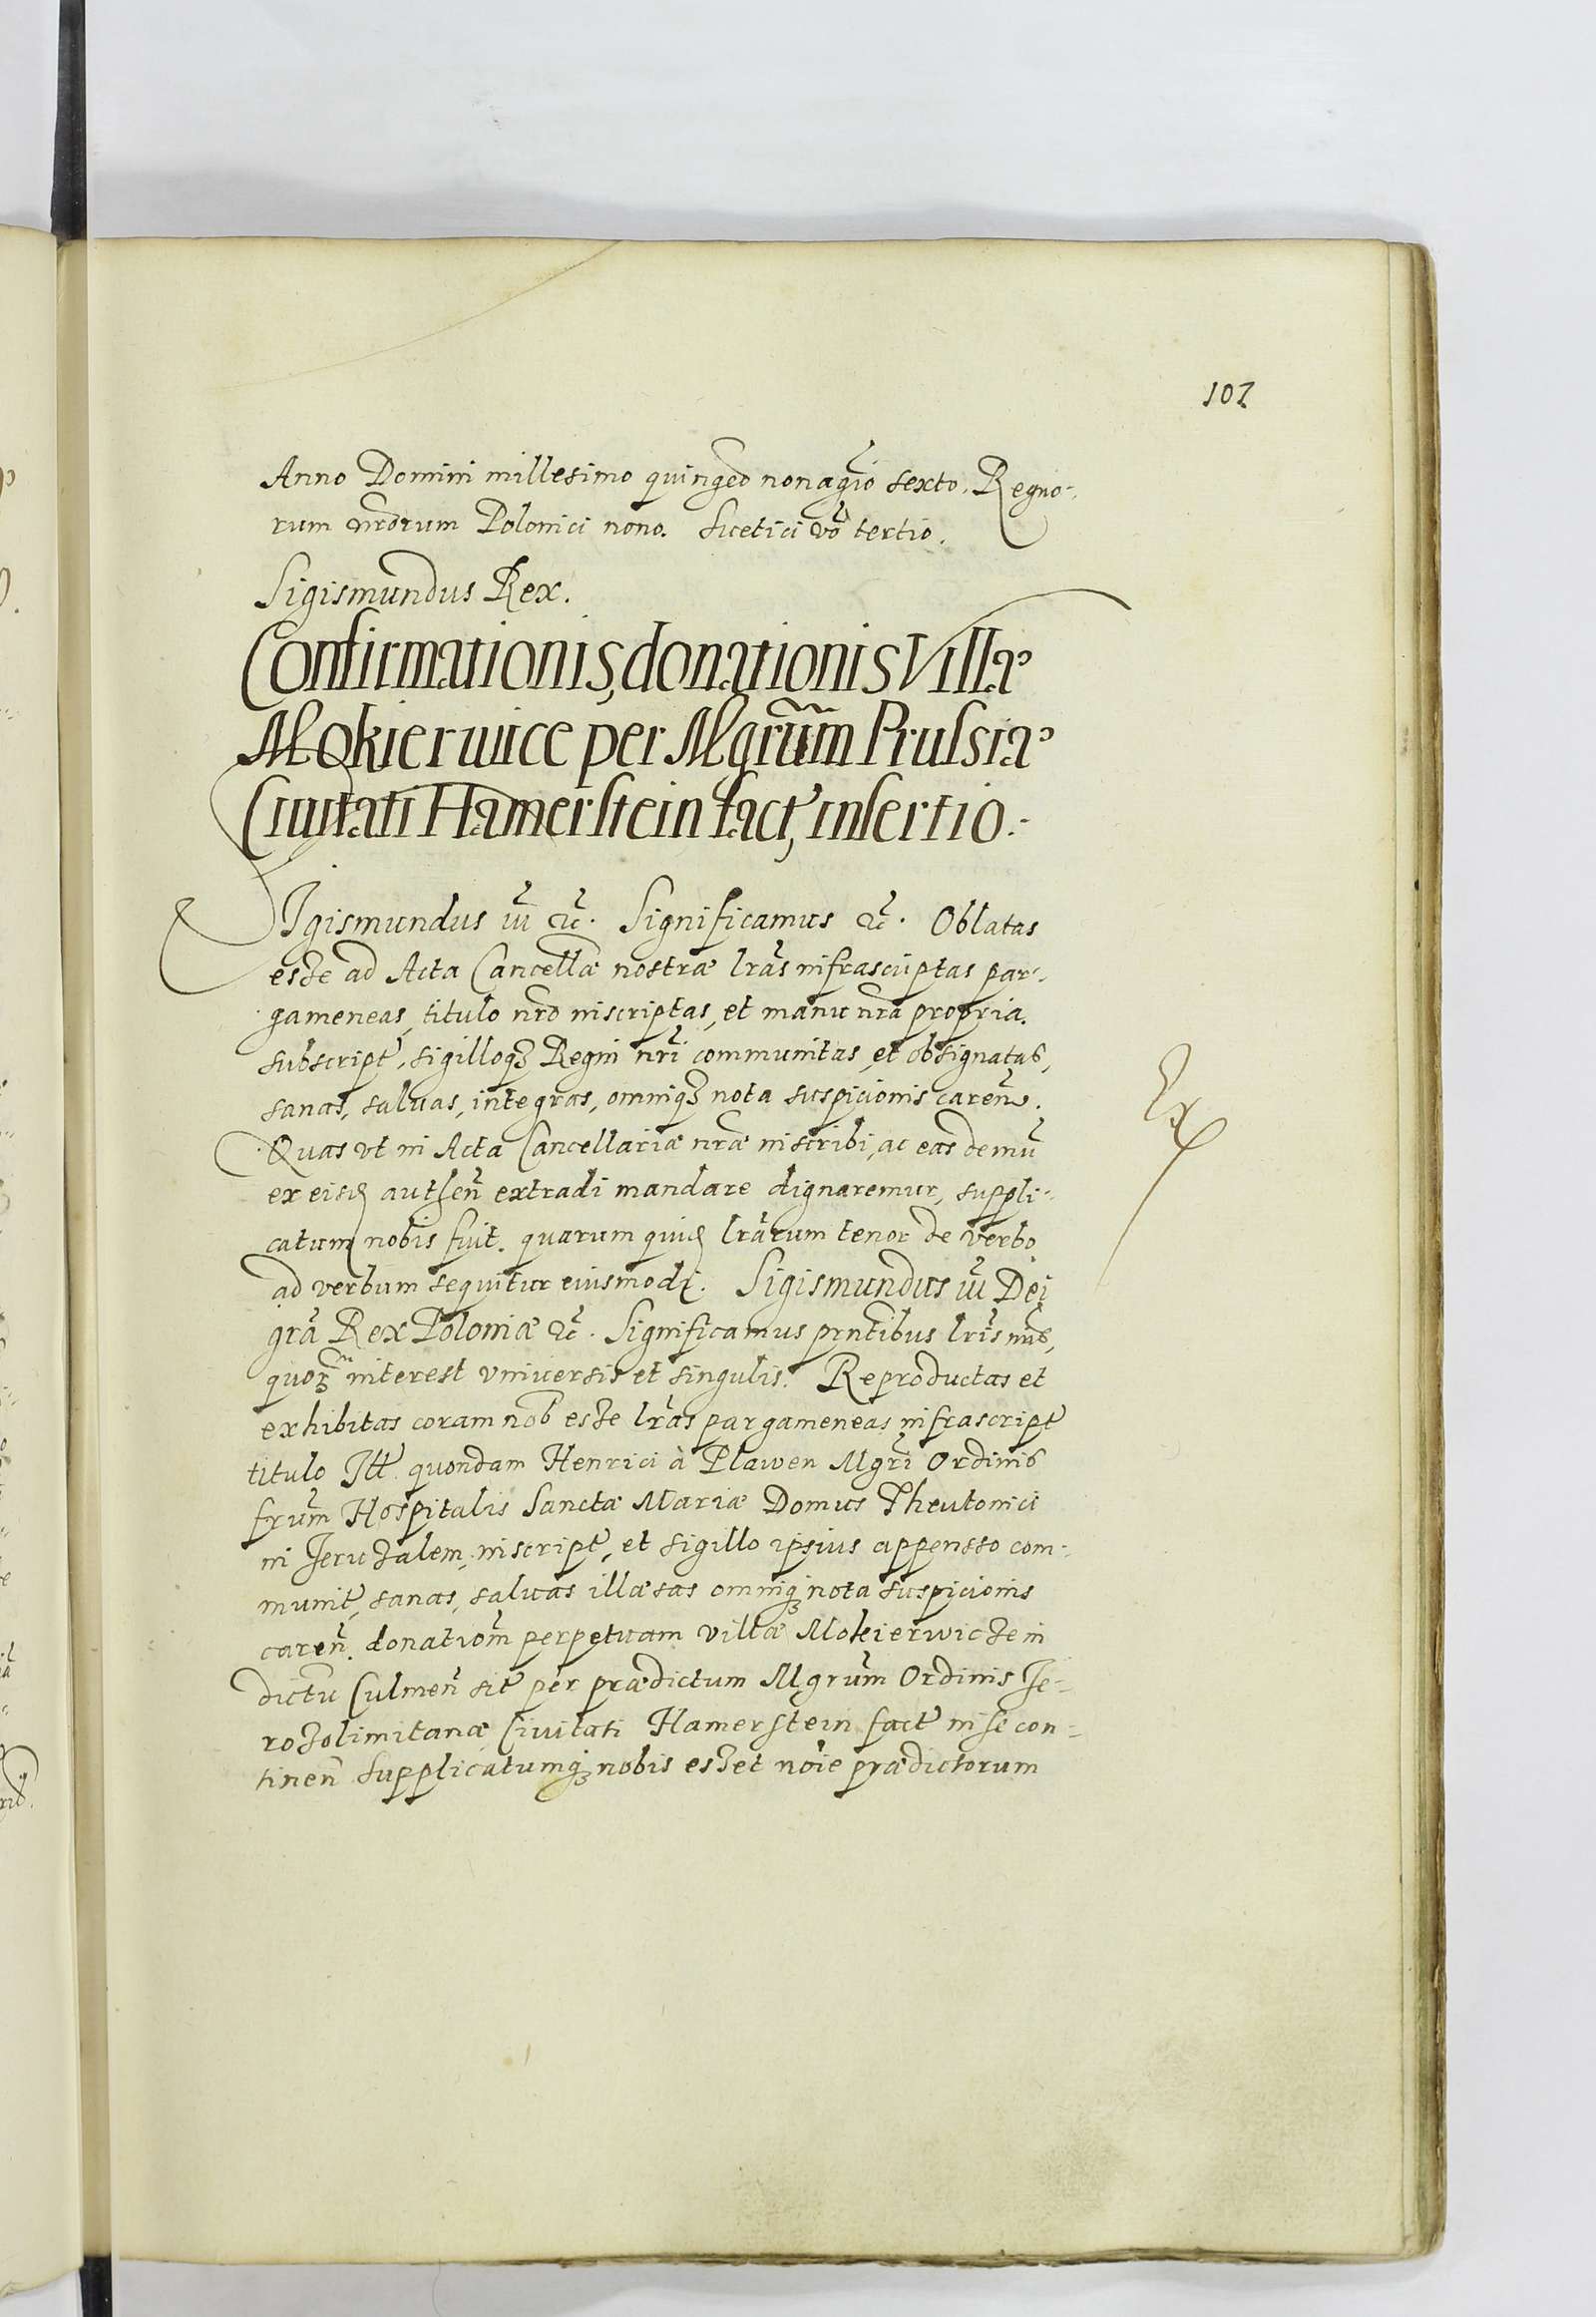 102
Anno Domini millesimo quinged nonagio sexto. Regno-
rum nrorum Polonici nono. Suetici vo tertio.
Sigismundus Rex.
Confirmationis, donationis Villæ
Mokierwice per Mgrum Prussiæ
Ciuitati Hamerstein fact, insertio.
SIgismundus iii etc. Significamus etc. Oblatas
esse ad Acta Cancellæ nostræ lras infrascriptas par-
gameneas, titulo nro inscriptas, et manu nra propria
subscript, sigilloq3 Regni nri communitas, et obsignatas,
sanas, saluas, integras, omniq3 nota suspicionis caren.
Quas vt in Acta Cancellariæ nræ inscribi, ac easdemu
ex eisd authen extradi mandare dignaremur, suppli-
catum nobis fuit. quarum quid lrarum tenor de verbo
ad verbum sequitur eiusmodi. Sigismundus iii Dei
gra Rex Poloniæ etc. Significamus pntibus lris nris,
quoȝ interest vniuersis et singulis. Reproductas et
exhibitas coram nob esse lras pargameneas infrascript
titulo Ill quondam Henrici à Plawen Mgri Ordinis
frum Hospitalis Sanctæ Mariæ Domus Theutonici
in Jerusalem, inscript, et sigillo ipsius appensso com-
munit, sanas, saluas illæsas omniq3 nota suspicionis
caren. donationm perpetuam villæ Mokierwicse in
dictu Culmen sit per prædictum Mgrum Ordinis Je-
rosolimitanæ Ciuitati Hamerstein fact in se con-
tinen Supplicatumq3 nobis esset noie prædictorum
Ex